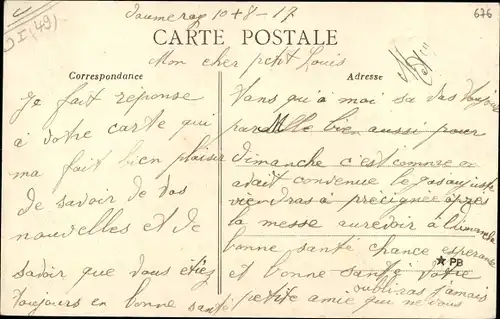 10 + 8 - 17
676
CARTE POSTALE
Mon cher petit Louis
Correspondance
Adresse
Je fait réponse
à votre carte qui
ma fait bien plaisir
de savoir de vos
nouvelles et de
savoir que vous étiez
toujours en bonne santé
Vans qu'à moi sa vas toujour
bien aussi pour
dimanche c'est comme on
avait convenue
viendras à après
la messe aurevoir à dimanche
bonne santé chance esperance
et bonne santé votre
PB
petite amie qui ne vous
oubliras jamais